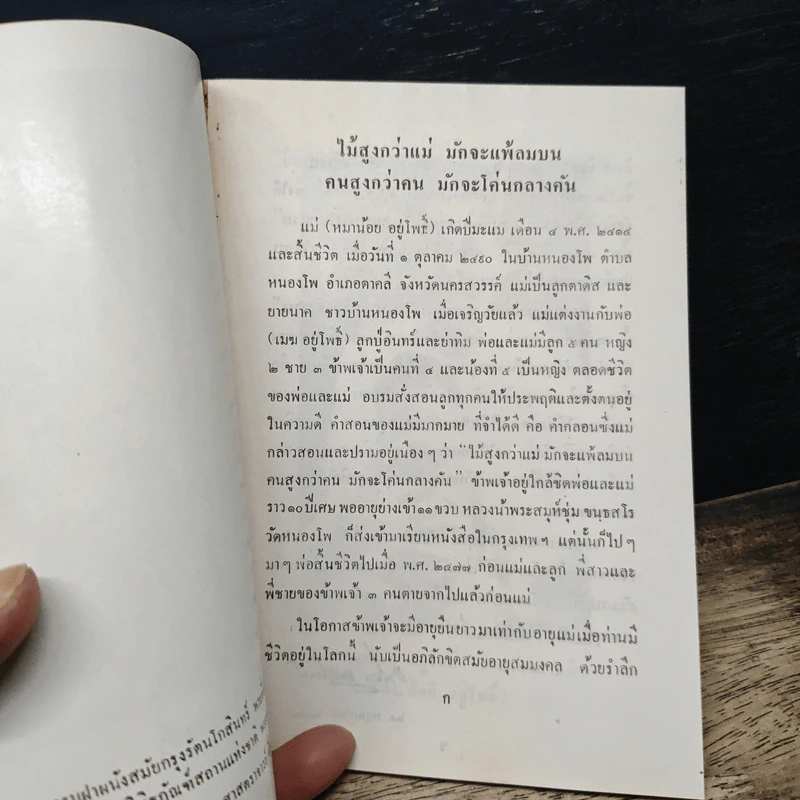 ไม้สูงกว่าแม่ มักจะแพ้ลมบน
คนสูงกว่าคน มักจะโค่นกลางคัน
แม่ (หมาน้อย อยู่โพธิ์) เกิดปีมะแม เดือน ๔ พ.ศ. ๒๔๑๔
และสิ้นชีวิต เมื่อวันที่ ๑ ตุลาคม ๒๔๙๐ ในบ้านหนองโพ ตำบล
หนองโพ อำเภอตาคลี จังหวัดนครสวรรค์ แม่เป็นลูกตาดิส และ
ยายนาค ชาวบ้านหนองโพ เมื่อเจริญวัยแล้ว แม่แต่งงานกับพ่อ
(เมฆ อยู่โพธิ์) ลูกปู่อินทร์และย่าทิม พ่อและแม่มีลูก ๕ คน หญิง
๒ ชาย ๓ ข้าพเจ้าเป็นคนที่ ๔ และน้องที่ ๕ เป็นหญิง ตลอดชีวิต
ของพ่อและแม่ อบรมสั่งสอนลูกทุกคนให้ประพฤติและตั้งตนอยู่
ในความดี คำสอนของแม่มีมากมาย ที่จำได้ดี คือ คำกลอนซึ่งแม่
กล่าวสอนและปรามอยู่เนือง ๆ ว่า "ไม้สูงกว่าแม่ มักจะแพ้ลมบน
คนสูงกว่าคน มักจะโค่นกลางคัน" ข้าพเจ้าอยู่ใกล้ชิดพ่อและแม่
ราว ๑๐ ปีเศษ พออายุย่างเข้า ๑๑ ขวบ หลวงน้าพระสมุห์ชุ่ม ขนฺธสโร
วัดหนองโพ ก็ส่งเข้ามาเรียนหนังสือในกรุงเทพ ฯ แต่นั้นก็ไป ๆ
มา ๆ พ่อสิ้นชีวิตไปเมื่อ พ.ศ. ๒๔๗๗ ก่อนแม่และลูก พี่สาวและ
พี่ชายของข้าพเจ้า ๓ คนตายจากไปแล้วก่อนแม่
ในโอกาสข้าพเจ้าจะมีอายุยืนยาวมาเท่ากับอายุแม่เมื่อท่านมี
ชีวิตอยู่ในโลกนี้ นับเป็นอภิลักขิตสมัยอายุสมมงคล ด้วยรำลึก
ก
ฝาผนังสมัยกรุงรัตนโกสินทร์
ภัณฑ์สถานแห่งชาติ
ศาสตราจารย์